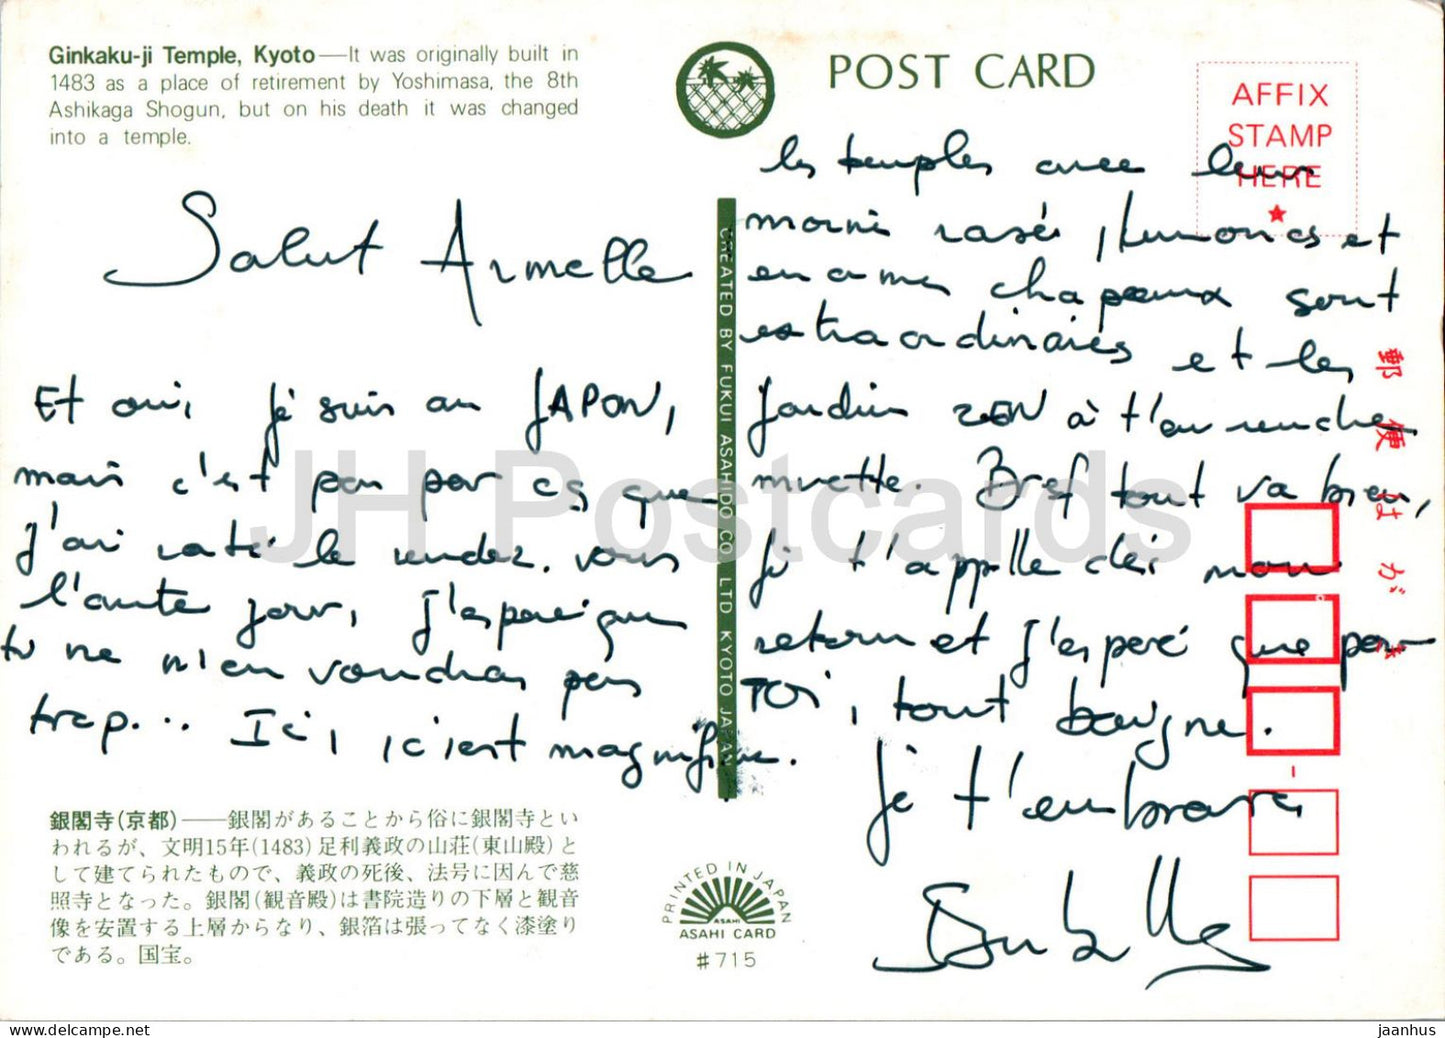 Ginkaku-ji Temple, Kyoto—It was originally built in
1483 as a place of retirement by Yoshimasa, the 8th
Ashikaga Shogun, but on his death it was changed
into a temple.
Salut Armelle
Et oui, je suis au JAPON,
mais c'est pas parce que
j'ai raté le rendez-vous
l'autre jour, j'espère que
tu ne m'en voudras pas
trop... Ici, c'est magnifique.
銀閣寺(京都)――銀閣があることから俗に銀閣寺とい
われるが、文明15年(1483)足利義政の山荘(東山殿)と
して建てられたもので、義政の死後、法号に因んで慈
照寺となった。銀閣(観音殿)は書院造りの下層と観音
像を安置する上層からなり、銀箔は張ってなく漆塗り
である。国宝。
CREATED BY FUKUI ASAHIDO CO LTD KYOTO JAPAN
POST CARD
AFFIX
STAMP
HERE
les temples avec leurs
rasés, kimonos et
chapeaux sont
extraordinaires et les
jardins ZEN à t'en rendre
muette. Bref tout va bien,
je t'appelle dès mon
retour et j'espère que pour
TOI, tout baigne.
Je t'embrasse
郵便はがき
PRINTED IN JAPAN
ASAHI
ASAHI CARD
#715
JH Postcards
jaanhus